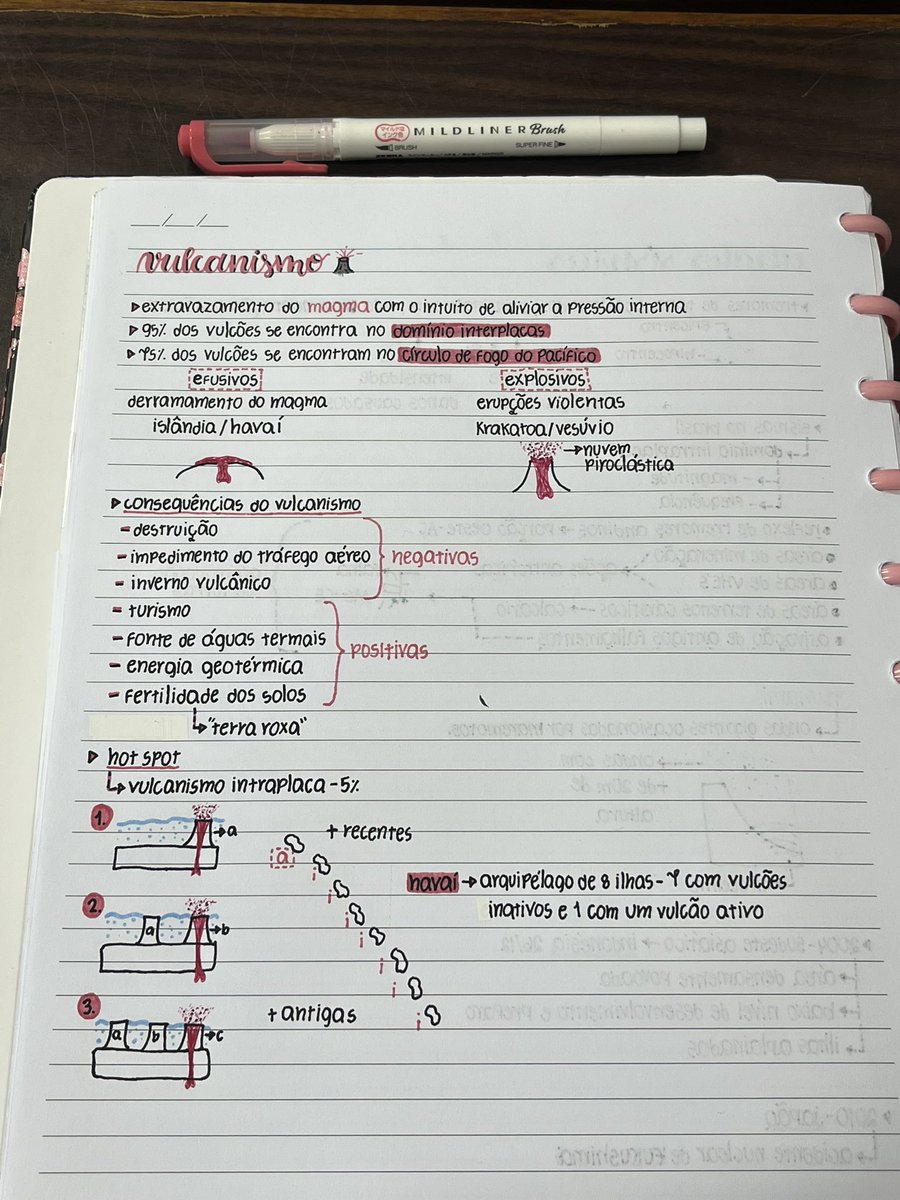 マイルドなインク色 MILDLINER Brush
BRUSH SUPER FINE
ZEBRA
__/__/__
vulcanismo
▹extravazamento do magma com o intuito de aliviar a pressão interna
▹95% dos vulcões se encontra no domínio interplacas
▹75% dos vulcões se encontram no círculo de fogo do pacífico
efusivos explosivos
derramamento do magma erupções violentas
islândia/havaí Krakatoa/vesúvio
→nuvem
piroclástica
▹consequências do vulcanismo
-destruição
-impedimento do tráfego aéreo negativas
-inverno vulcânico
-turismo
-fonte de águas termais
-energia geotérmica positivas
-fertilidade dos solos
↳"terra roxa"
▹hot spot
↳vulcanismo intraplaca-5%
1. →a
+recentes
a
i
i
i
i
i
i
i
havaí→arquipélago de 8 ilhas-7 com vulcões
inativos e 1 com um vulcão ativo
2. a →b
3. a b →c
+antigas